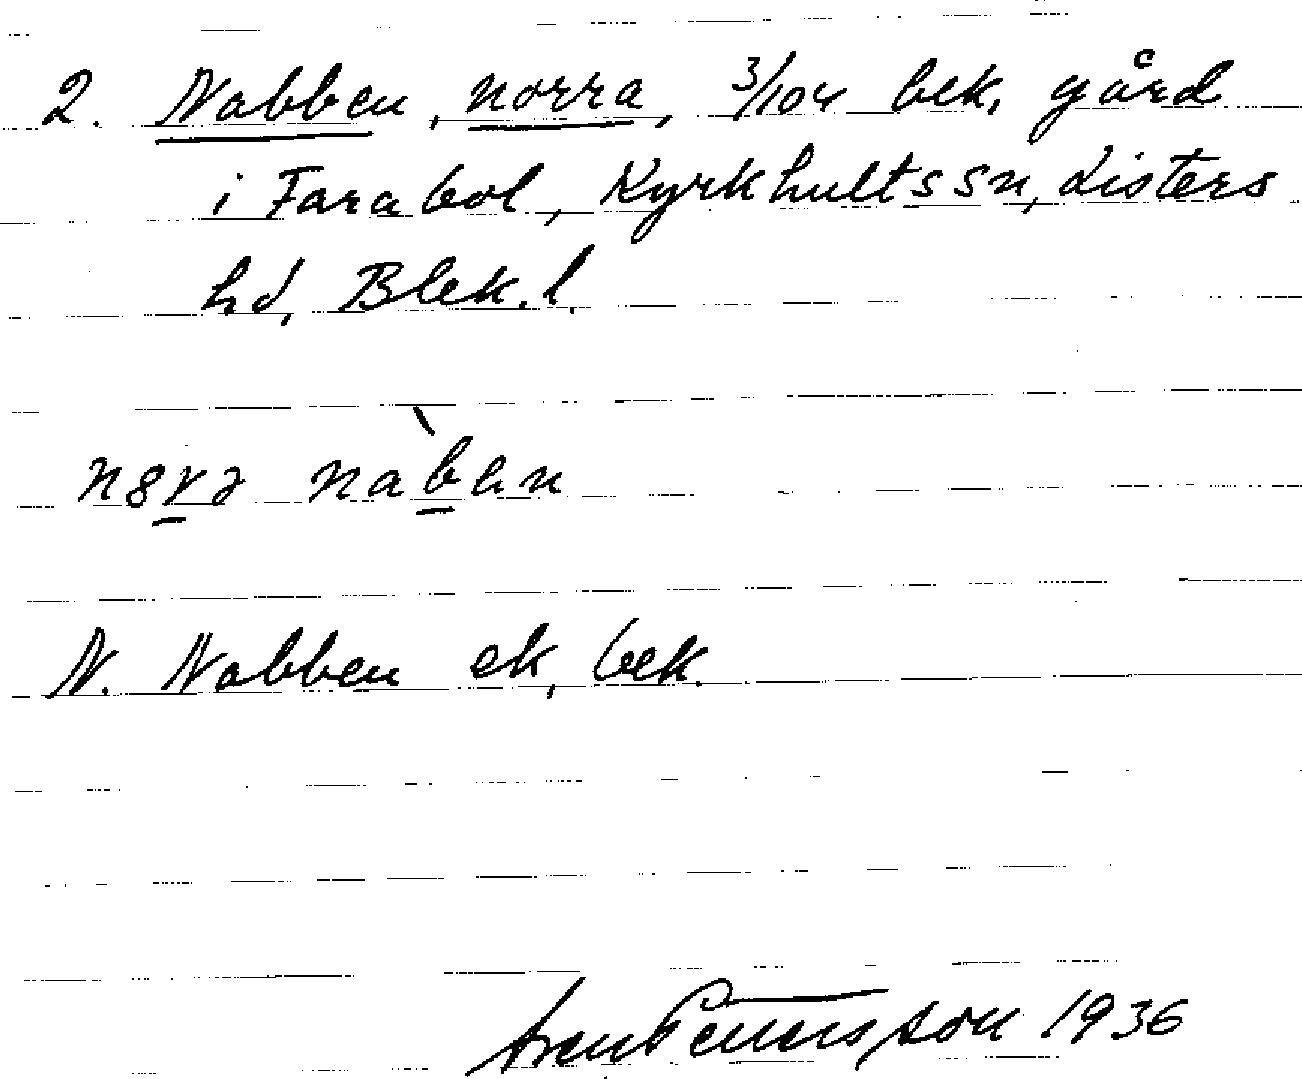 2. Nabben, norra, 3/104 bek. gård
i Farabol, Kyrkhults sn, Listers
hd, Blek. l.
nabən
N. Nabben ek, bek.
Sven Pettersson 1936